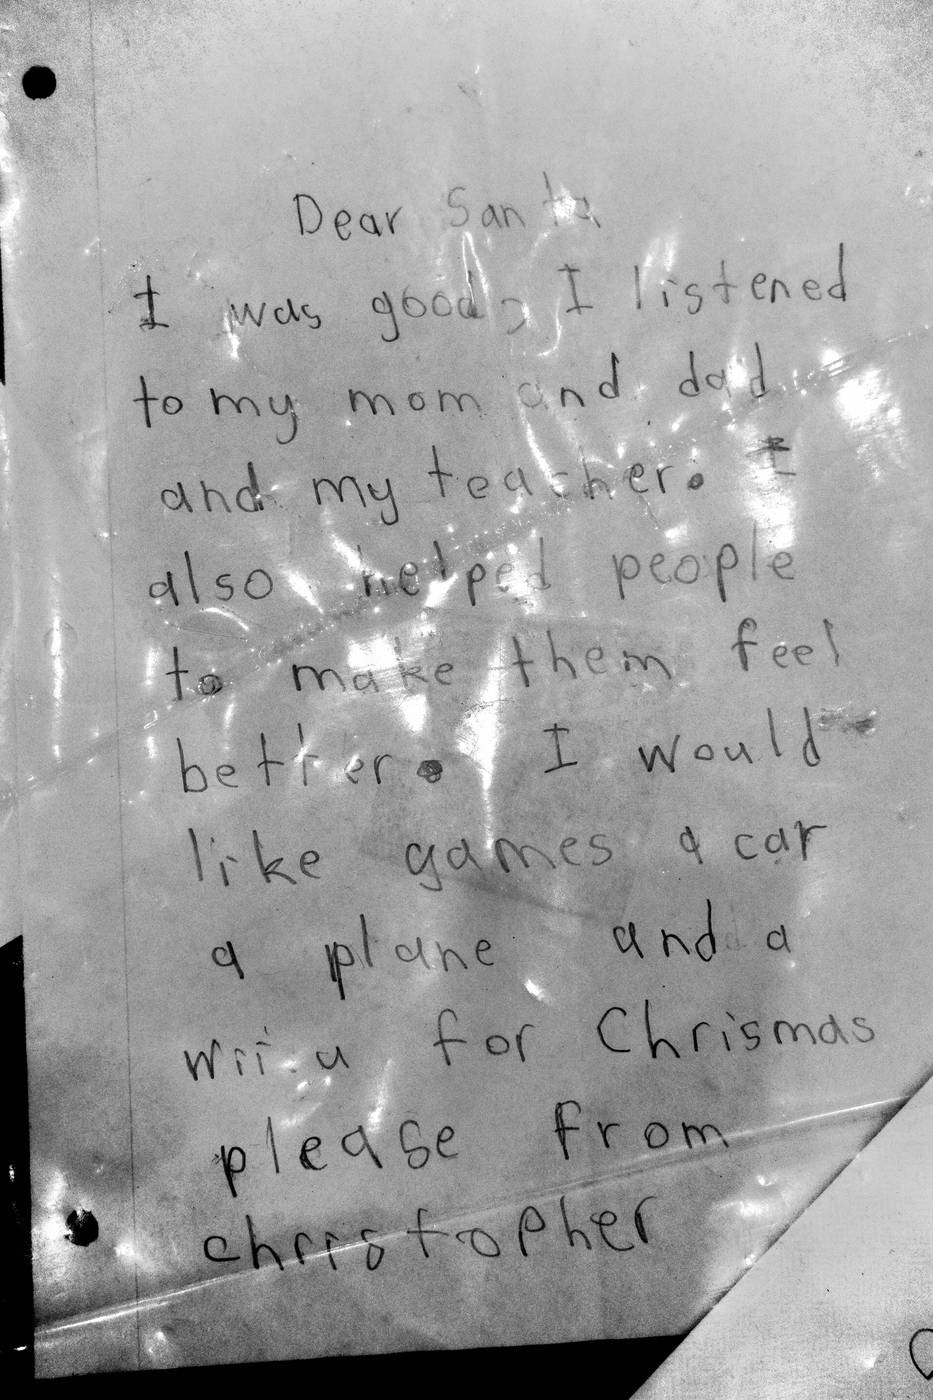 Dear Santa
I was good, I listened
to my mom and dad
and my teacher. I
also helped people
to make them feel
better. I would
like games a car
a plane and a
wii u for Chrismas
please from
christopher